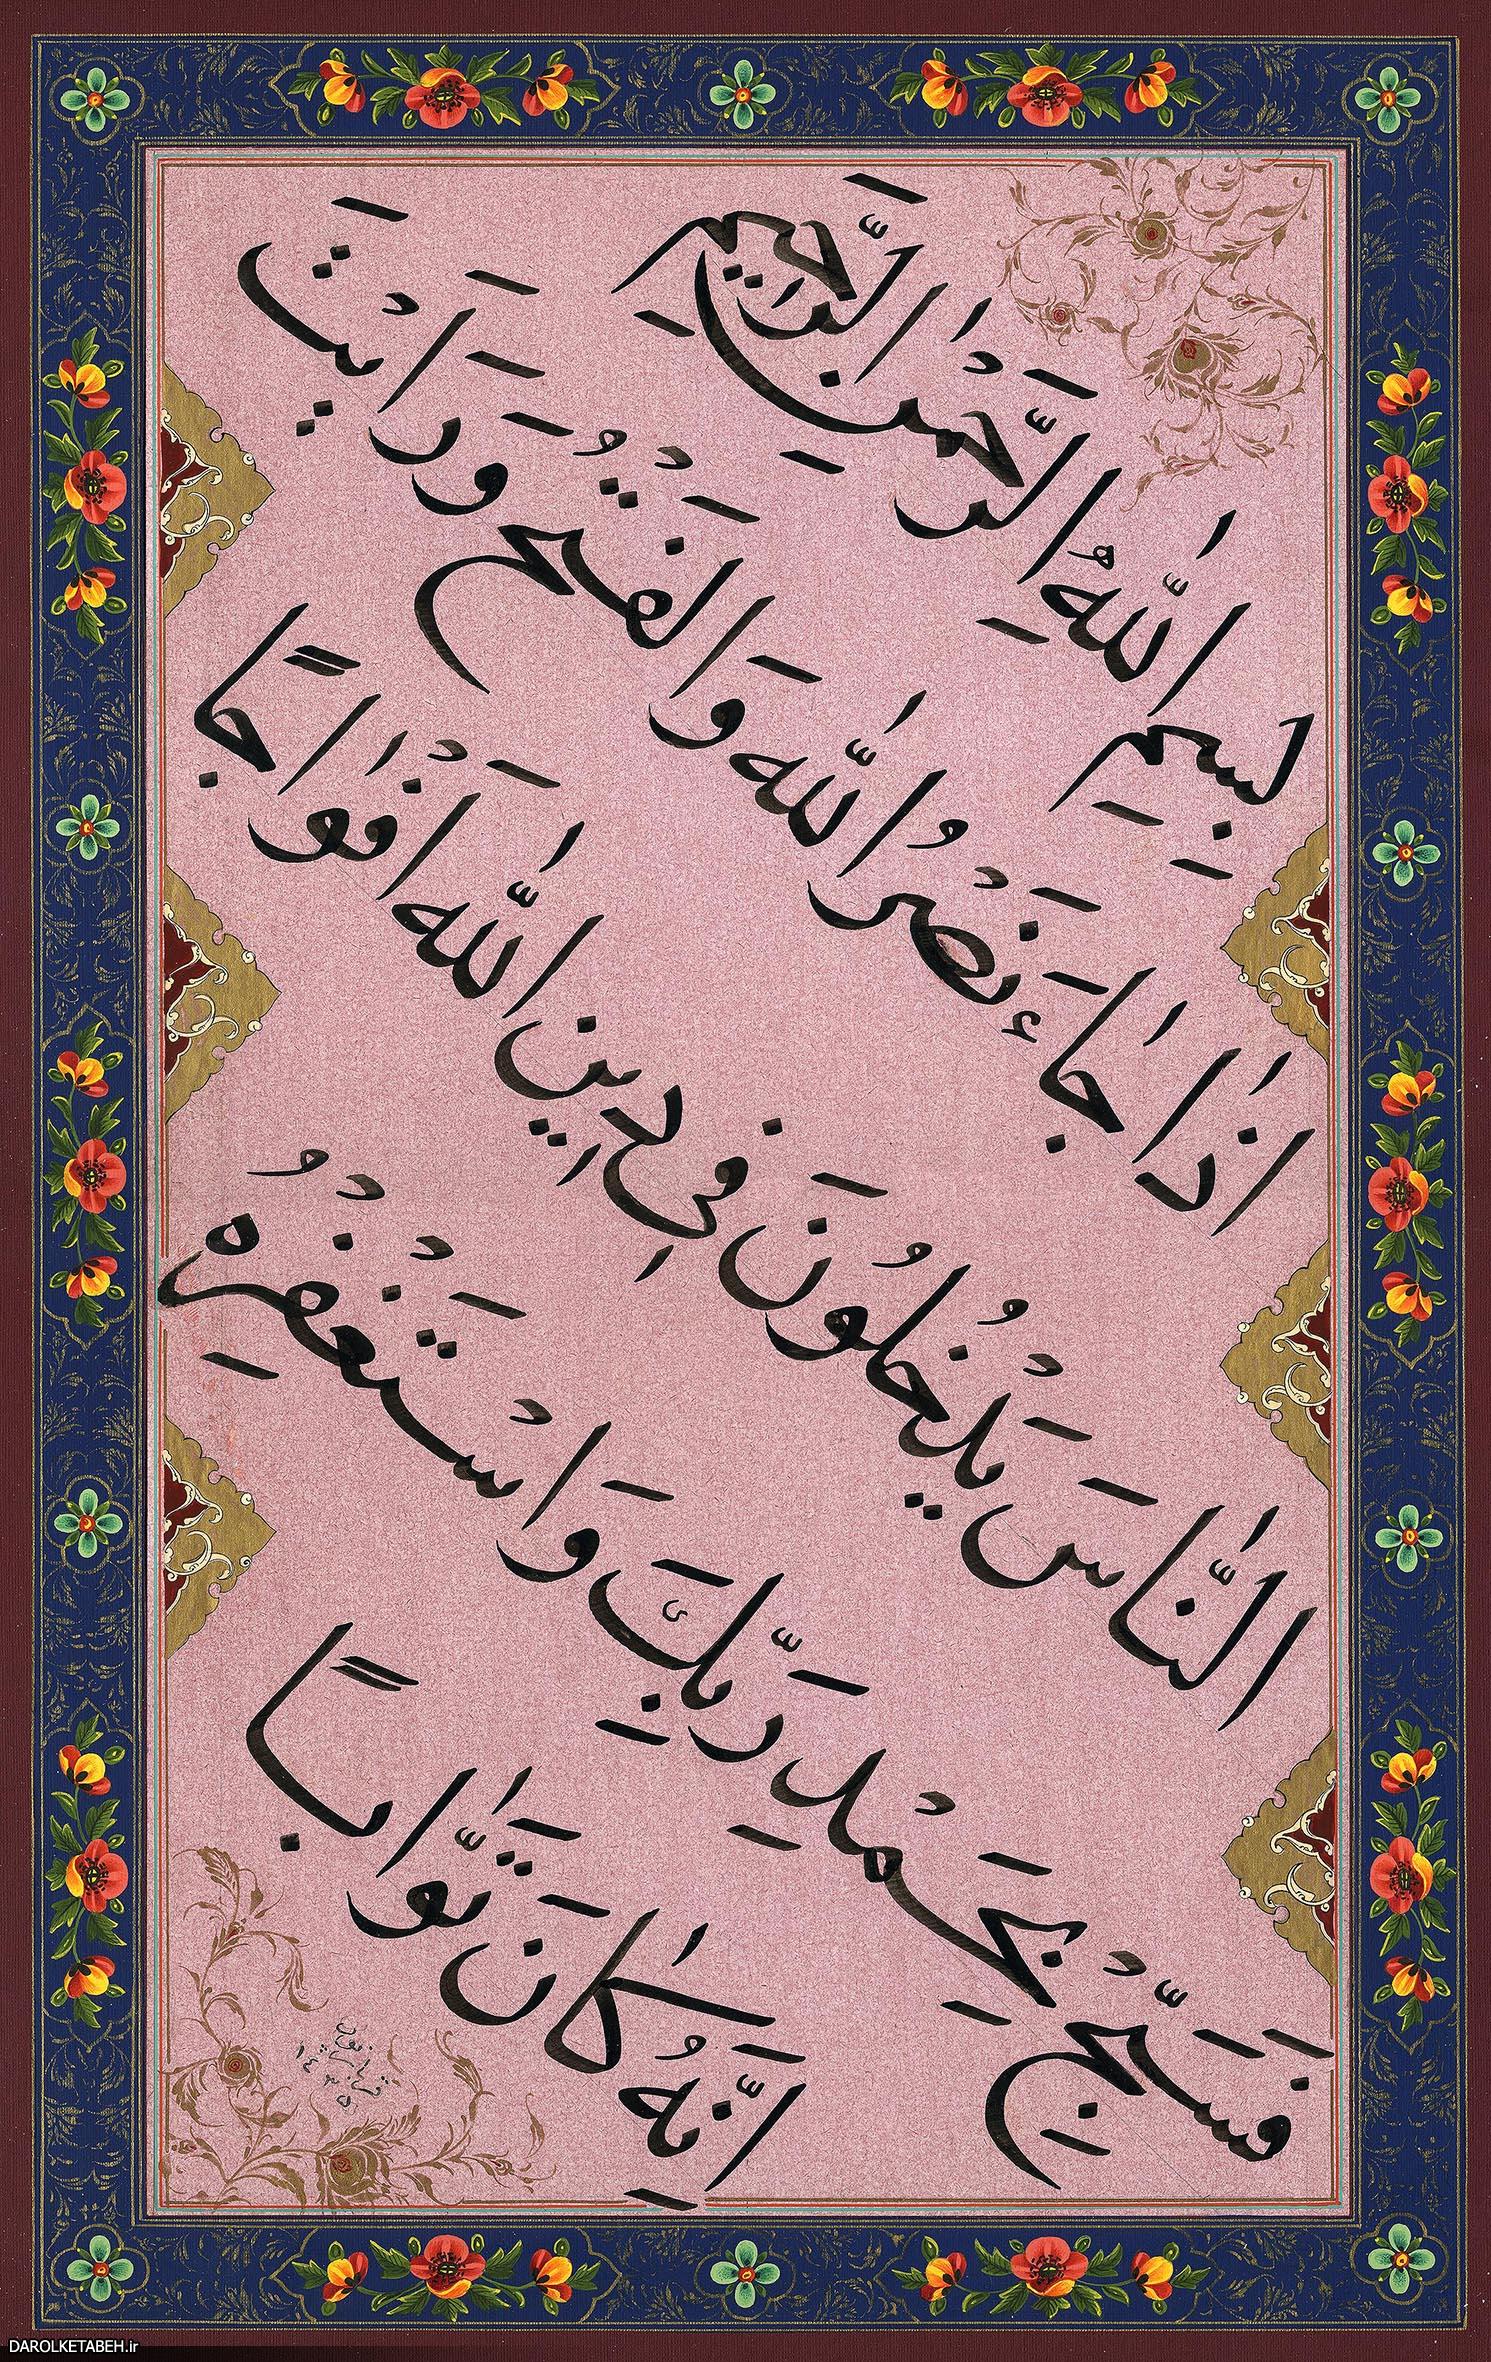 بِسْمِ اللّٰهِ الرَّحْمٰنِ الرَّحِیمِ
اِذٰا جٰاءَ نَصْرُ اللّٰهِ وَ الْفَتْحُ وَ رَاَیْتَ
النّٰاسَ یَدْخُلُونَ فِی دِینِ اللّٰهِ اَفْوٰاجًا
فَسَبِّحْ بِحَمْدِ رَبِّکَ وَ اسْتَغْفِرْهُ
اِنَّهُ کٰانَ تَوّٰابًا
DAROLKETABEH.ir